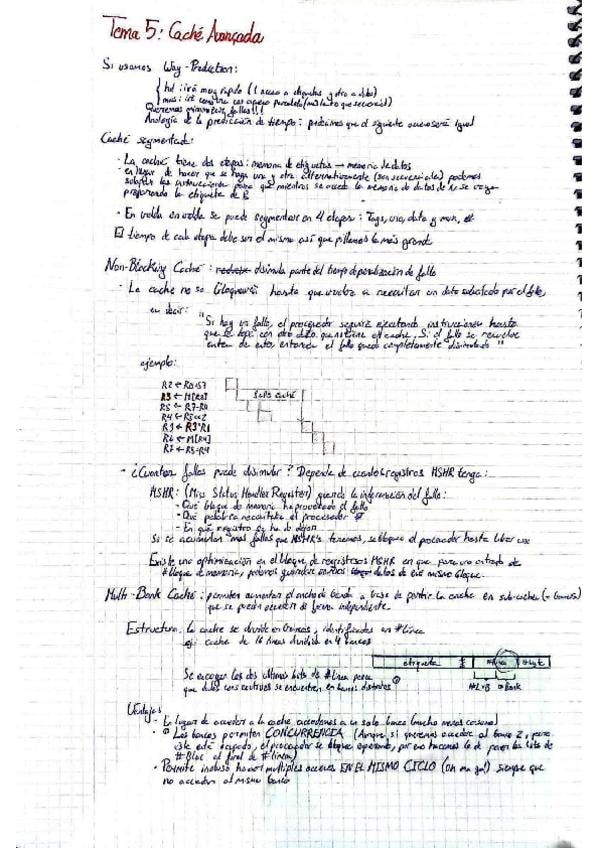 Tema 5: Caché Avanzada
Si usamos Way-Prediction:
hit: irá muy rápido (1 acceso a etiquetas y otro a dato)
miss: irá como con acceso paralelo
Queremos minimizar fallos!!!
Analogía de la predicción de tiempo: predecimos que el siguiente acceso será igual
Caché segmentada:
- La caché tiene dos etapas: memoria de etiquetas → memoria de datos
- en lugar de hacer que se haga una y otra alternativamente (son secuenciales) podemos
solapar las instrucciones para que mientras se accede la memoria de datos de se vaya
preparando la etiqueta de
- En se puede segmentar en 4 etapas: Tags, data y
El tiempo de cada etapa debe ser el mismo así que pillamos la más grande
Non-Blocking Caché: disimula parte del tiempo de penalización de fallo
- La cache no se bloqueará hasta que vuelva a necesitar un dato solicitado por el fallo,
es decir:
"Si hay un fallo, el procesador seguirá ejecutando instrucciones hasta
que se tope con otro dato que no tiene el caché. Si el fallo se resuelve
antes de esto, entonces el fallo queda completamente disimulado"
ejemplo:
R3 ← M[R2]
FALLO CACHÉ
R3 ← R3*R1
R6 ← M[R4]
R7 ← R5-R4
- ¿Cuántos fallos puede disimular? Depende de cuantos registros MSHR tenga:
MSHR: (Miss Status Handler Register) guarda la información del fallo:
- Qué bloque de memoria ha provocado el fallo
- Qué palabra necesitaba el procesador
- En qué registro se ha de dejar
Si se acumulan más fallos que MSHR's tenemos, se bloquea el procesador hasta liberar uno
Existe una optimización en el bloque de registros MSHR en que para una entrada de
#bloque de memoria, podemos guardar datos de ese mismo bloque.
Multi-Bank Caché: permiten aumentar el ancho de banda a base de partir la cache en sub-caches (= bancos)
que se puedan acceder de forma independiente.
Estructura: La cache se divide en bancos, identificados en #línea
ej: cache de 16 líneas dividida en 4 bancos
etiqueta #línea #byte
Se escogen los dos últimos bits de #línea para
que datos consecutivos se encuentren en bancos distintos
#L*B #Bank
Ventajas
- En lugar de acceder a la cache, accedemos a un solo banco (mucho menos consumo)
- Los bancos permiten CONCURRENCIA (Aunque si queremos acceder al banco 2, pero
este está ocupado, el procesador se bloquea esperando, por eso hacemos lo de poner los bits de
al final de #línea)
- Permite incluso hacer múltiples accesos EN EL MISMO CICLO (Oh my god) siempre que
no accedan al mismo banco